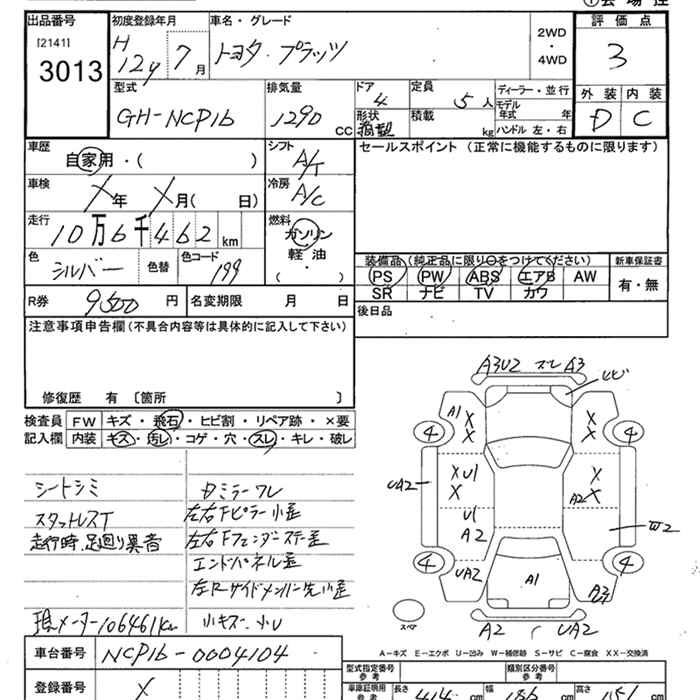 出品番号 初度登録年月 車名・グレード 評価点
[2141]
3013
H12y 7月 トヨタ プラッツ 2WD・4WD 3
型式 排気量 ドア 定員 ディーラー・並行 外装 内装
GH-NCP16 1290 CC 4 5人 モデル年式 年 D C
形状 積載 kg ハンドル 左・右
車歴 自家用・( ) シフト A/T セールスポイント (正常に機能するものに限ります)
車検 X年 X月( 日) 冷房 A/C
走行 10万6千462km 燃料 ガソリン
軽油
( ・ )
色 シルバー 色替 色コード 199
装備品(純正品に限り○をつけてください) 新車保証書
PS PW ABS エアB AW 有・無
SR ナビ TV カワ
R券 9500円 名変期限 月 日 後日品
注意事項申告欄(不具合内容等は具体的に記入して下さい)
修復歴 有 〔箇所 〕
検査員 FW キズ・飛石・ヒビ割・リペア跡・×要
記入欄 内装 キズ・汚レ・コゲ・穴・スレ・キレ・破レ
シートシミ Dミラーワレ
スタットレスT 左右Fピラー小歪
走行時、足廻り異音 左右Fフェンダーステー歪
エンドパネル歪
左Rサイドメンバー先小歪
現メーター106461km 小キズ、小U
A3U2 スレ A3
ヒビ
A1 X X X X
4 4
UA2 X U1 X X A2 X
U1
A2 W2
4 4
UA2 A1 A3
スペア A2 UA2
A−キズ E−エクボ U−凹み W−補修跡 S−サビ C−腐食 XX−交換済
車台番号 NCP16-0004104
登録番号 X
型式指定番号 参考 類別区分番号 参考
車庫証明用 参考 長さ 414 cm 幅 166 cm 高さ 151 cm